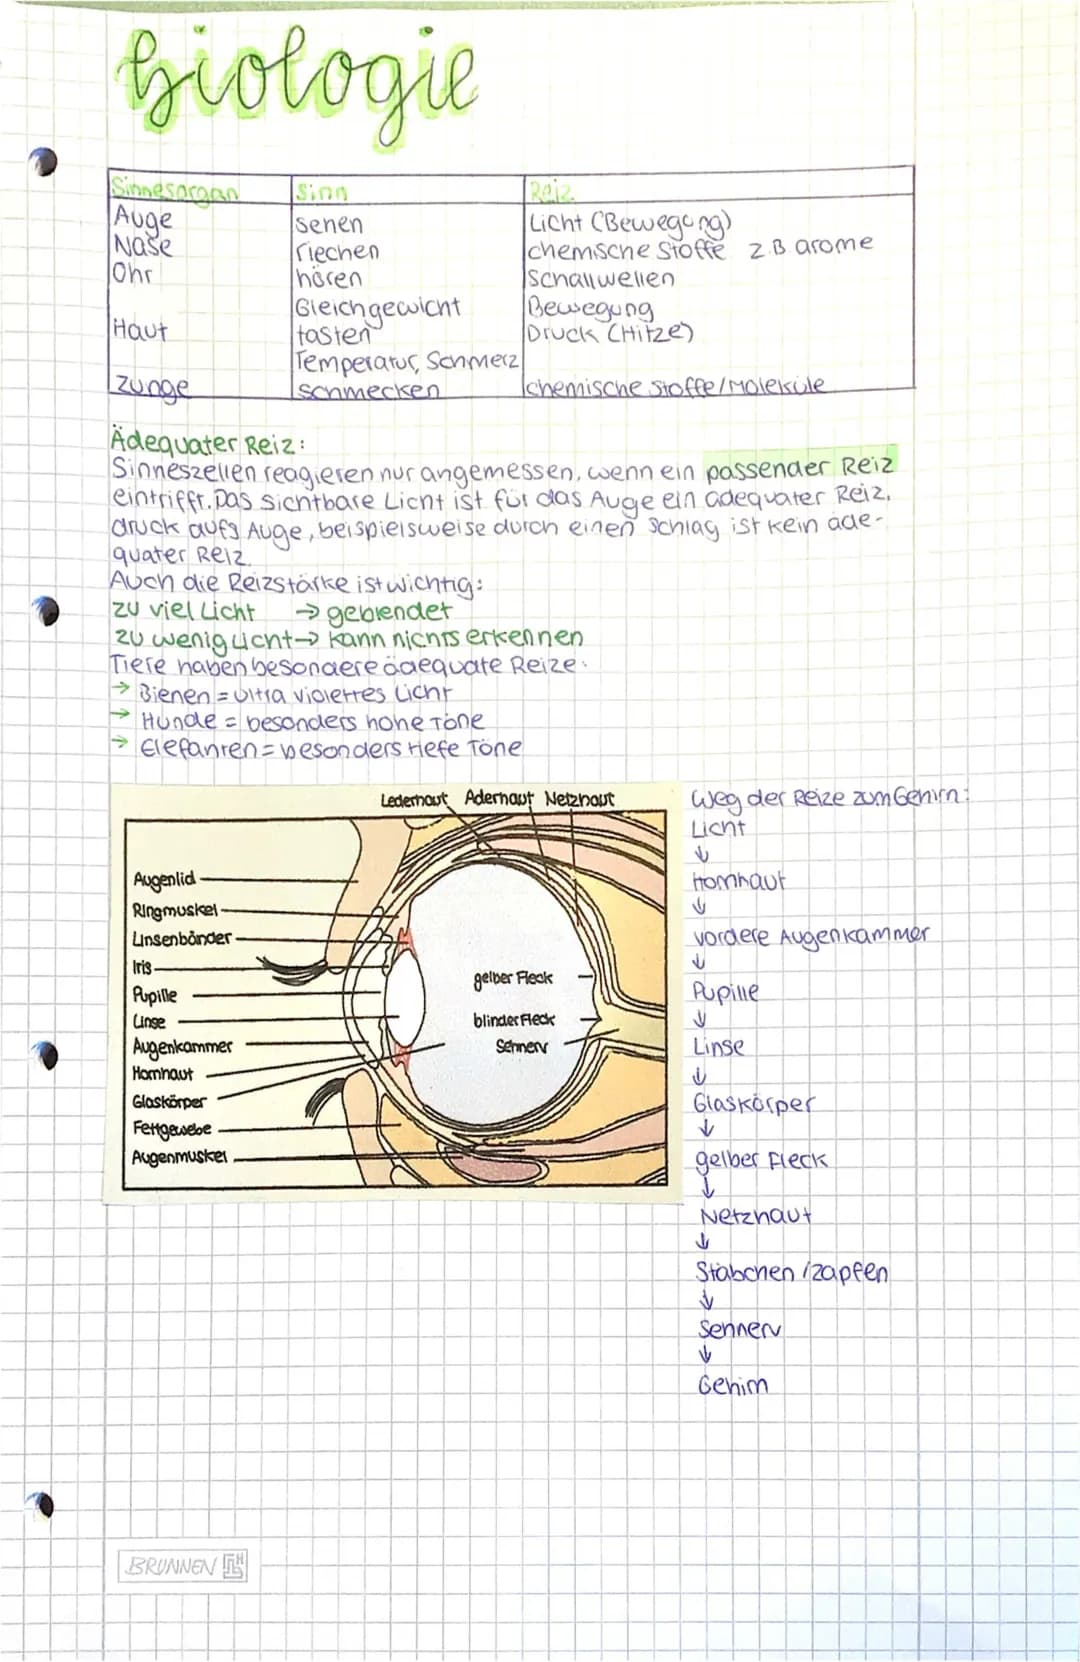 biologie
Sinnesorgan Sinn Reiz
Auge sehen Licht (Bewegung)
Nase riechen chemische Stoffe z.B arome
Ohr hören Schallwellen
Gleichgewicht Bewegung
Haut tasten Druck (Hitze)
Temperatur, Schmerz
Zunge schmecken chemische Stoffe/Moleküle
Ädequater Reiz:
Sinneszellen reagieren nur angemessen, wenn ein passender Reiz
eintrifft. Das sichtbare Licht ist für das Auge ein adequater Reiz,
druck aufs Auge, beispielsweise durch einen Schlag ist kein ade-
quater Reiz
Auch die Reizstärke ist wichtig:
zu viel Licht → geblendet
zu wenig Licht → kann nichts erkennen
Tiere haben besondere adequate Reize:
→ Bienen = ultra violettes Licht
→ Hunde = besonders hohe Töne
→ Elefanten = besonders tiefe Töne
Lederhaut Aderhaut Netzhaut
Augenlid
Ringmuskel
Linsenbänder
Iris
Pupille
Linse
Augenkammer
Hornhaut
Glaskörper
Fettgewebe
Augenmuskel
gelber Fleck
blinder Fleck
Sehnerv
Weg der Reize zum Gehirn:
Licht
↓
Hornhaut
↓
vordere Augenkammer
↓
Pupille
↓
Linse
↓
Glaskörper
↓
gelber Fleck
↓
Netzhaut
↓
Stäbchen / zapfen
↓
Sehnerv
↓
Gehirn
BRUNNEN